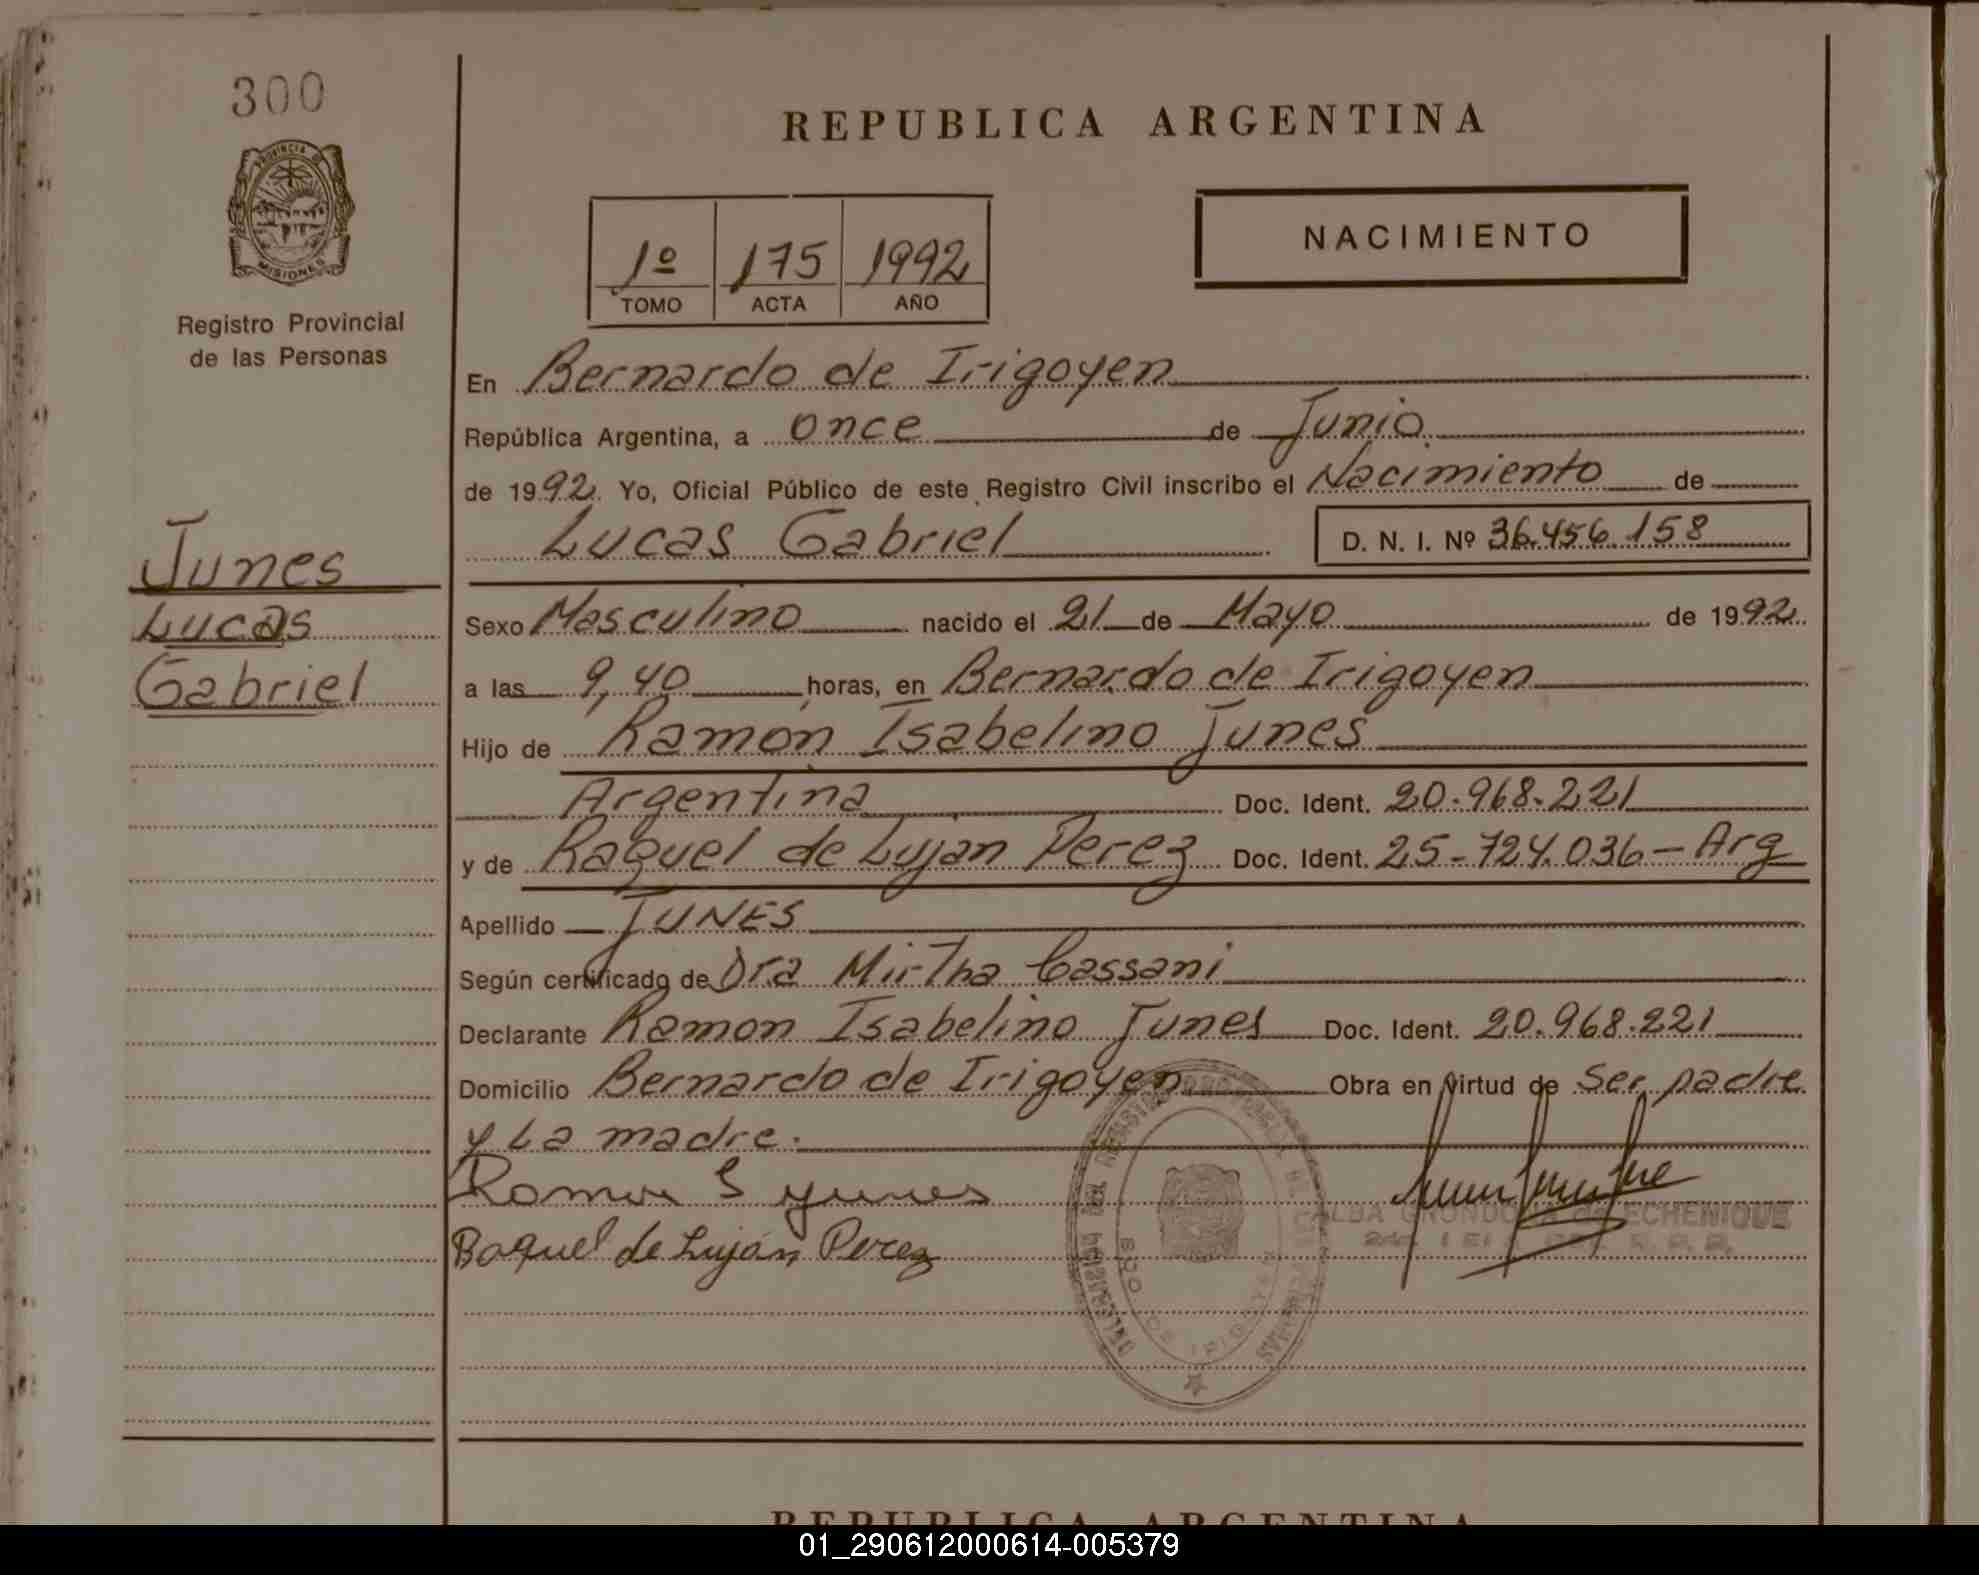 300
PROVINCIA DE
MISIONES
Registro Provincial
de las Personas
Junes
Lucas
Gabriel
REPUBLICA ARGENTINA
1º 175 1992
TOMO ACTA AÑO
NACIMIENTO
En Bernardo de Irigoyen
República Argentina, a once de Junio.
de 1992. Yo, Oficial Público de este Registro Civil inscribo el Nacimiento de
Lucas Gabriel D. N. I. Nº 36.456.158
Sexo Masculino nacido el 21 de Mayo de 1992.
a las 9,40 horas, en Bernardo de Irigoyen
Hijo de Ramón Isabelino Junes
Argentina Doc. Ident. 20.968.221
y de Raquel de Lujan Perez Doc. Ident. 25-724.036-Arg
Apellido JUNES
Según certificado de Dra Mirtha Cassani
Declarante Ramon Isabelino Junes Doc. Ident. 20.968.221
Domicilio Bernardo de Irigoyen Obra en virtud de ser padre
y La madre.
Ramon I Yunes
Raquel de Luján Perez
ALBA GRONDONA de ECHENIQUE
BDO DE IRIGOYEN
REPUBLICA ARGENTINA
01_290612000614-005379